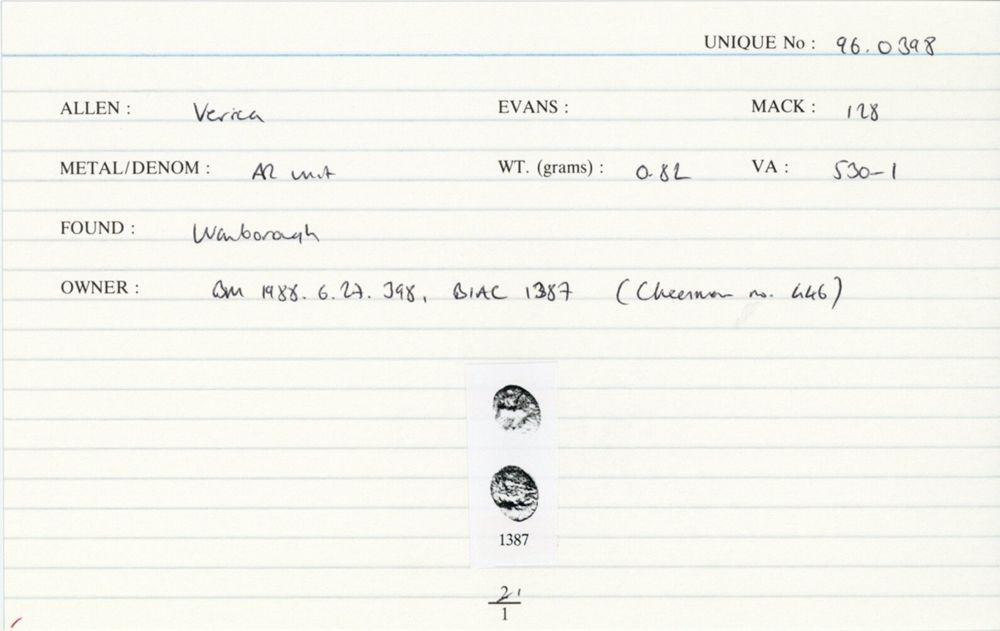 UNIQUE No : 96.0398
ALLEN : Verica EVANS : MACK : 128
METAL/DENOM : AR unit WT. (grams) : 0.82 VA : 530-1
FOUND : Wanborough
OWNER : BM 1988.6.27.398, BIAC 1387 (Cheesman no. 446)
1387
2
1